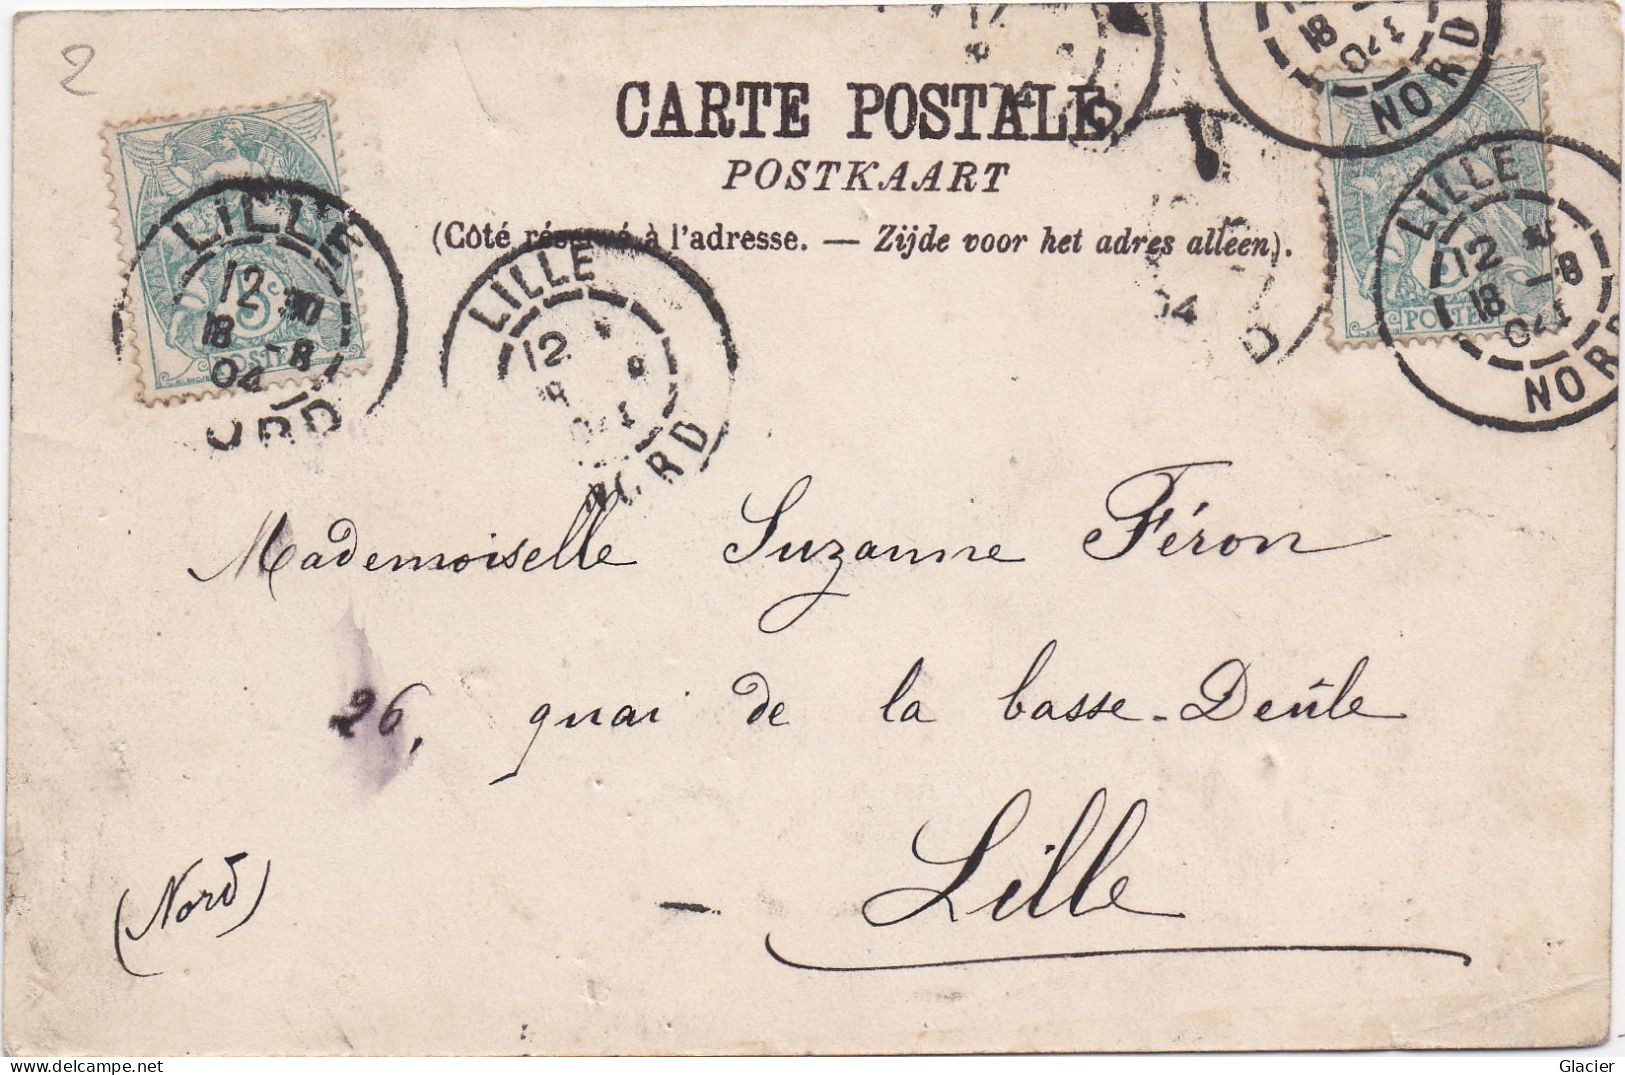 2
CARTE POSTALE
POSTKAART
(Côté réservé à l'adresse. — Zijde voor het adres alleen).
LILLE
12
18 -8
04
NORD
LILLE
12
04
NORD
18
04
NORD
LILLE
12
18 -8
04
NORD
04
5c
POSTES
POSTES
Mademoiselle Suzanne Féron
26, quai de la basse-Deûle
(Nord) — Lille
Glacier